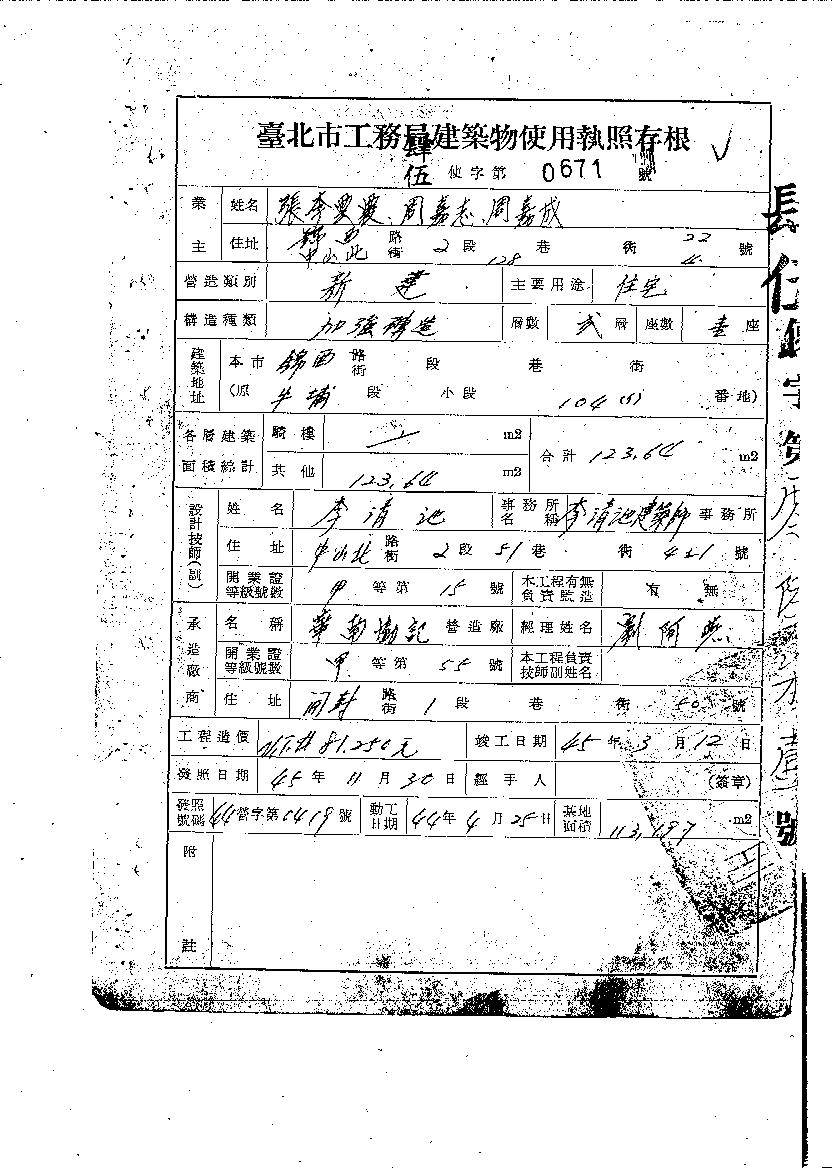 臺北市工務局建築物使用執照存根
肆伍 使字第 0671 號
業主 姓名 張李 周嘉志、周嘉成
住址 錦西 中山北 路街 2段 128 巷 街 22 4 號
營造類別 新建 主要用途 住宅
構造種類 加強構造 層數 弍層 座數 壹座
建築地址 本市 錦西 路街 段 巷 街
(原 牛埔 段 小段 104(5) 番地)
各層建築面積綜計 騎樓 m2 合計 123,64 m2
其他 123,64 m2
設計技師(副) 姓名 李清池 事務所名稱 李清池建築師 事務所
住址 中山北 路街 2段 51巷 街 421 號
開業證等級號數 甲 等第 15 號 本工程有無負責監造 有 無
承造廠商 名稱 華南 記 營造廠 經理姓名 劉阿
開業證等級號數 甲 等第 55 號 本工程負責技師副姓名
住址 開封 路街 1段 巷 街 50 號
工程造價 N.T.$ 81.250元 竣工日期 45年3月12日
發照日期 45年11月30日 經手人 (簽章)
發照號碼 44營字第0419號 動工日期 44年4月25日 基地面積 113,197 m2
附註
號